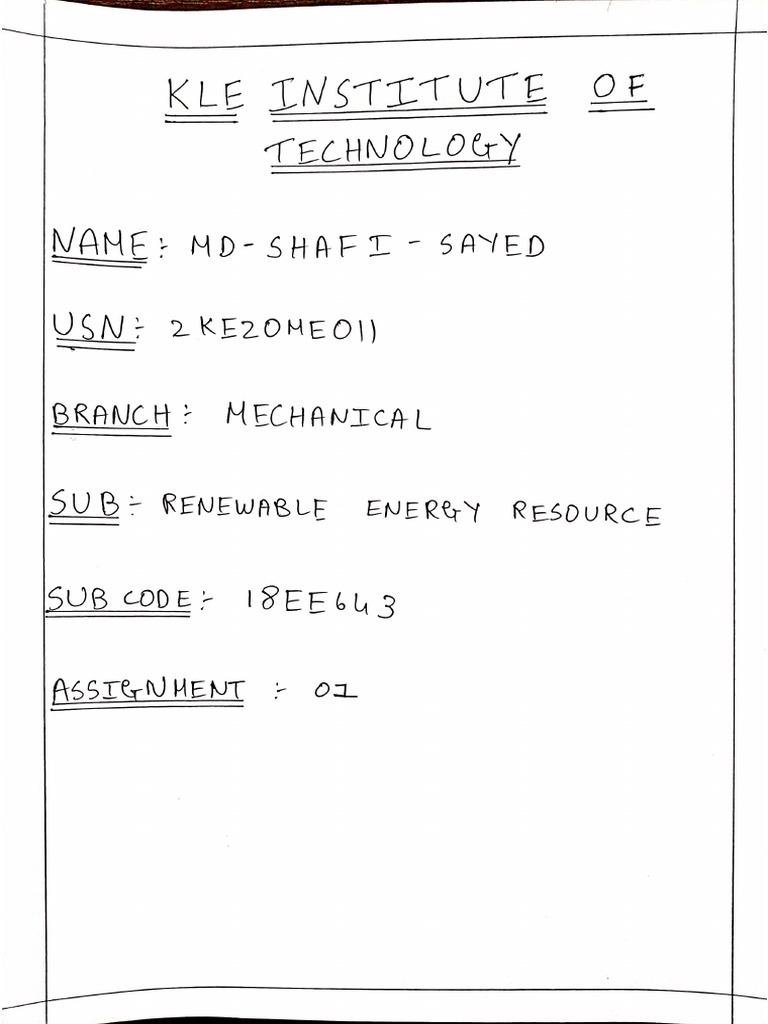 KLE INSTITUTE OF
TECHNOLOGY
NAME :- MD-SHAFI-SAYED
USN :- 2KE20ME011
BRANCH :- MECHANICAL
SUB :- RENEWABLE ENERGY RESOURCE
SUB CODE :- 18EE643
ASSIGNMENT :- 01